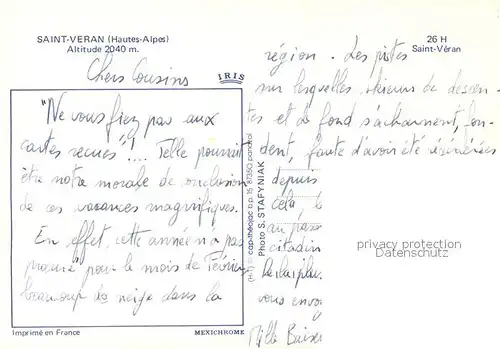 SAINT-VERAN (Hautes-Alpes)
Altitude 2040 m.
26 H
Saint-Véran
IRIS
Chers Cousins
"Ne vous fiez pas aux
cartes recues"!... Telle pourrait
être notre morale de conclusion
de ces vacances magnifiques.
En effet, cette année n'a pas
procuré pour le mois de Février
beaucoup de neige dans la
région. Les pistes
sur lesquelles skieurs de descen-
tes et de fond s'acharnent, fon-
dent, faute d'avoir été
depuis
celà
au
citadin
la plu
vous envo
Mille Baiser
cap-théojac b.p. 15 87350 panazol
Photo S. STAFYNIAK
privacy protection
Datenschutz
Imprimé en France
MEXICHROME